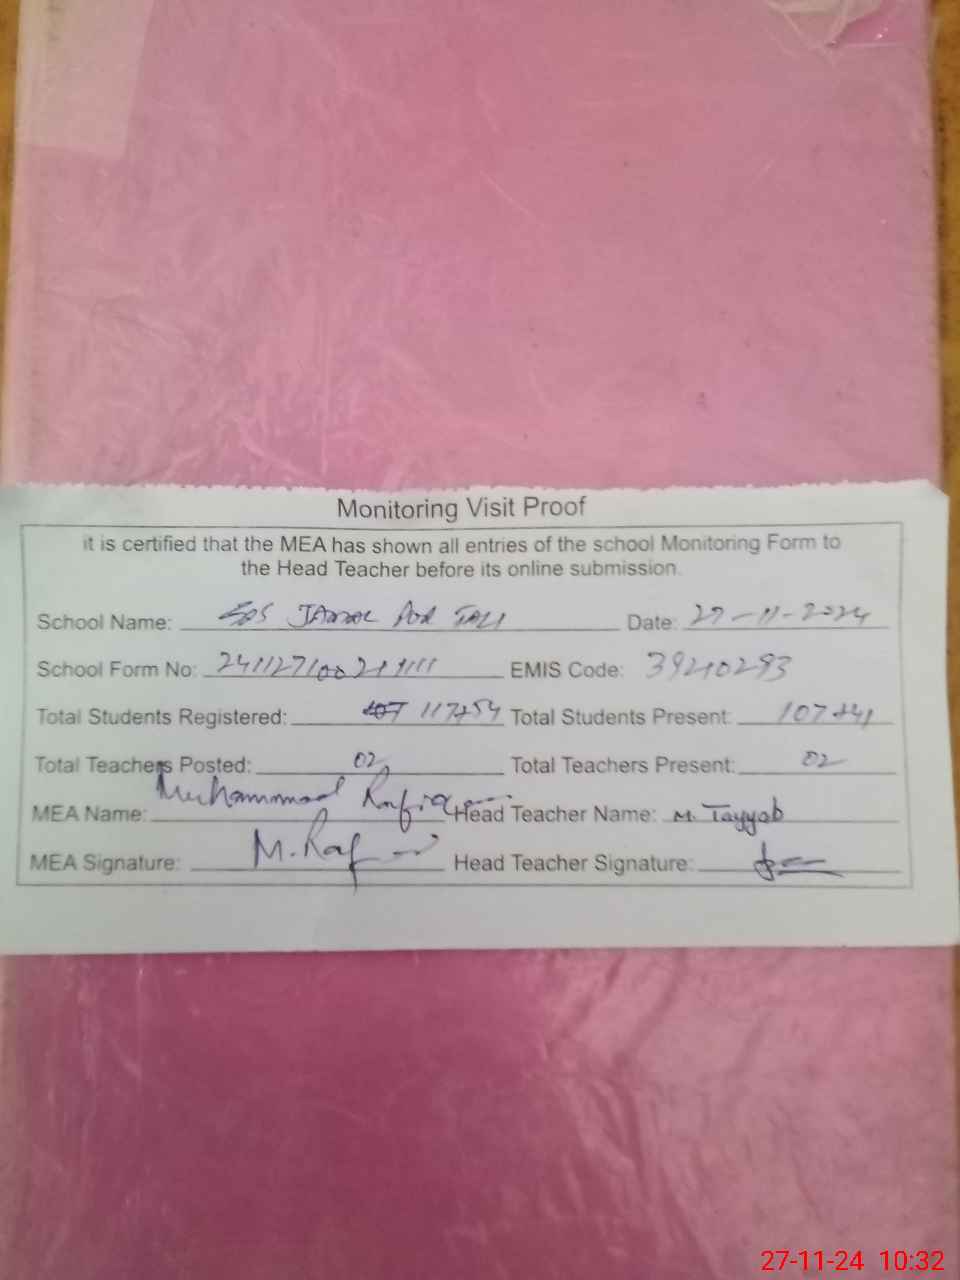 Monitoring Visit Proof
it is certified that the MEA has shown all entries of the school Monitoring Form to
the Head Teacher before its online submission.
School Name: JAMAL POR Date: 27-11-2024
School Form No: EMIS Code: 39210293
Total Students Registered: 117+54 Total Students Present: 107+41
Total Teachers Posted: 02 Total Teachers Present: 02
MEA Name: Muhammad Rafiq Head Teacher Name: M. Tayyab
MEA Signature: M. Raf Head Teacher Signature:
27-11-24 10:32